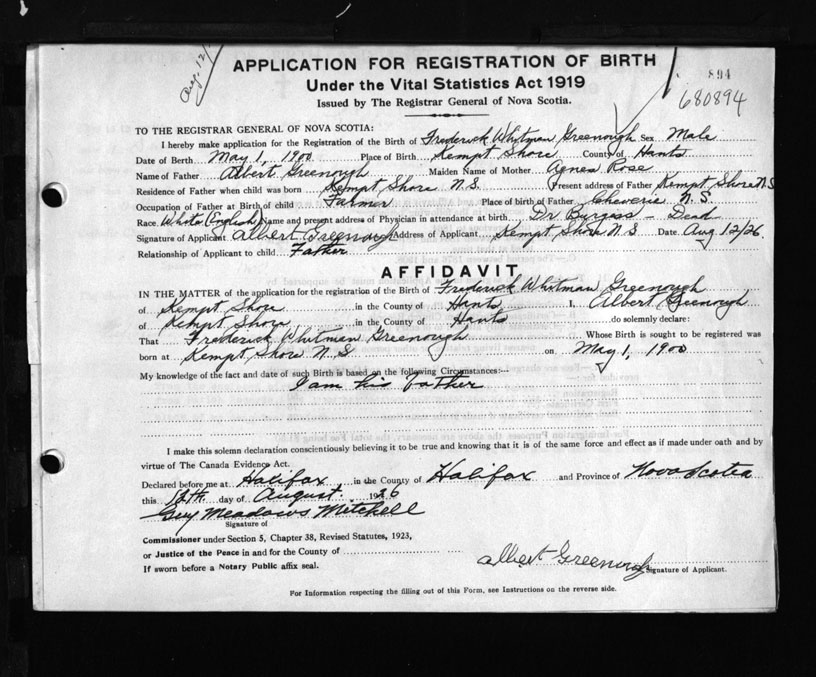 Aug. 12/
APPLICATION FOR REGISTRATION OF BIRTH
Under the Vital Statistics Act 1919
Issued by The Registrar General of Nova Scotia.
894
680894
TO THE REGISTRAR GENERAL OF NOVA SCOTIA:
I hereby make application for the Registration of the Birth of Frederick Whitman Greenough Sex Male
Date of Berth May 1, 1900 Place of Birth Kempt Shore County of Hants
Name of Father Albert Greenough Maiden Name of Mother Agnes Rose
Residence of Father when child was born Kempt Shore N.S. Present address of Father Kempt Shore N.S
Occupation of Father at Birth of child Farmer Place of birth of Father Cheverie N.S.
Race White (English) Name and present address of Physician in attendance at birth Dr Burgess - Dead
Signature of Applicant Albert Greenough Address of Applicant Kempt Shore N.S Date Aug 12/26.
Relationship of Applicant to child Father
AFFIDAVIT
IN THE MATTER of the application for the registration of the Birth of Frederick Whitman Greenough
of Kempt Shore in the County of Hants I, Albert Greenough
of Kempt Shore in the County of Hants do solemnly declare:
That Frederick Whitman Greenough Whose Birth is sought to be registered was
born at Kempt Shore N.S on May 1, 1900
My knowledge of the fact and date of such Birth is based on the following Circumstances:—
I am his father
I make this solemn declaration conscientiously believing it to be true and knowing that it is of the same force and effect as if made under oath and by
virtue of The Canada Evidence Act.
Declared before me at Halifax in the County of Halifax and Province of Nova Scotia
this 12th day of August 1926
Guy Meadows Mitchell
Signature of
Commissioner under Section 5, Chapter 38, Revised Statutes, 1923,
or Justice of the Peace in and for the County of
If sworn before a Notary Public affix seal.
Albert Greenough
Signature of Applicant.
For Information respecting the filling out of this Form, see Instructions on the reverse side.